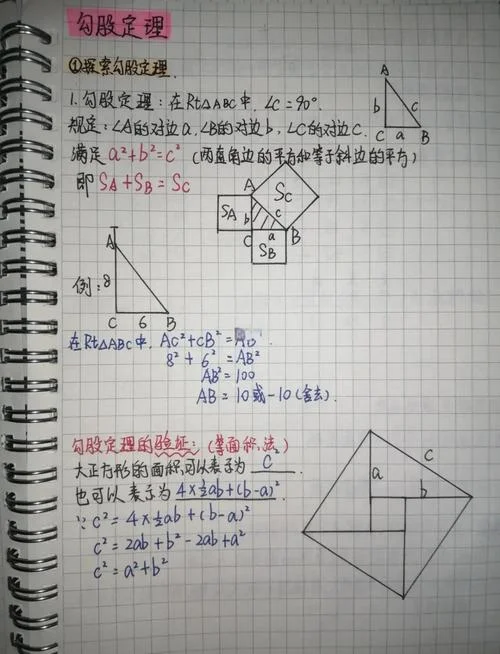 勾股定理
①探索勾股定理.
1.勾股定理：在Rt△ABC中，∠C=90°.
规定：∠A的对边a,∠B的对边b,∠C的对边c.
满足a²+b²=c² (两直角边的平方和等于斜边的平方)
即 SA+SB=SC
A
b
c
C
a
B
A
SA
SC
b
c
a
C
SB
B
例：
A
8
C
6
B
在Rt△ABC中，AC²+CB²=
8²+6²=AB²
AB²=100
AB=10或-10(舍去).
勾股定理的验证：(等面积法)
大正方形的面积可以表示为 c²
也可以表示为 4×½ab+(b-a)².
∵c²=4×½ab+(b-a)²
c²=2ab+b²-2ab+a²
c²=a²+b²
c
a
b